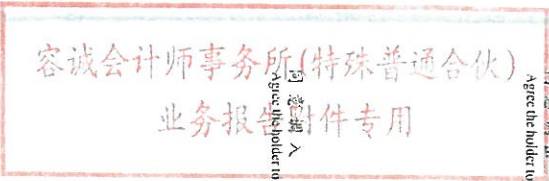 容诚会计师事务所(特殊普通合伙)
业务报告附件专用
同意调入
Agree the holder to
Agree the holder to